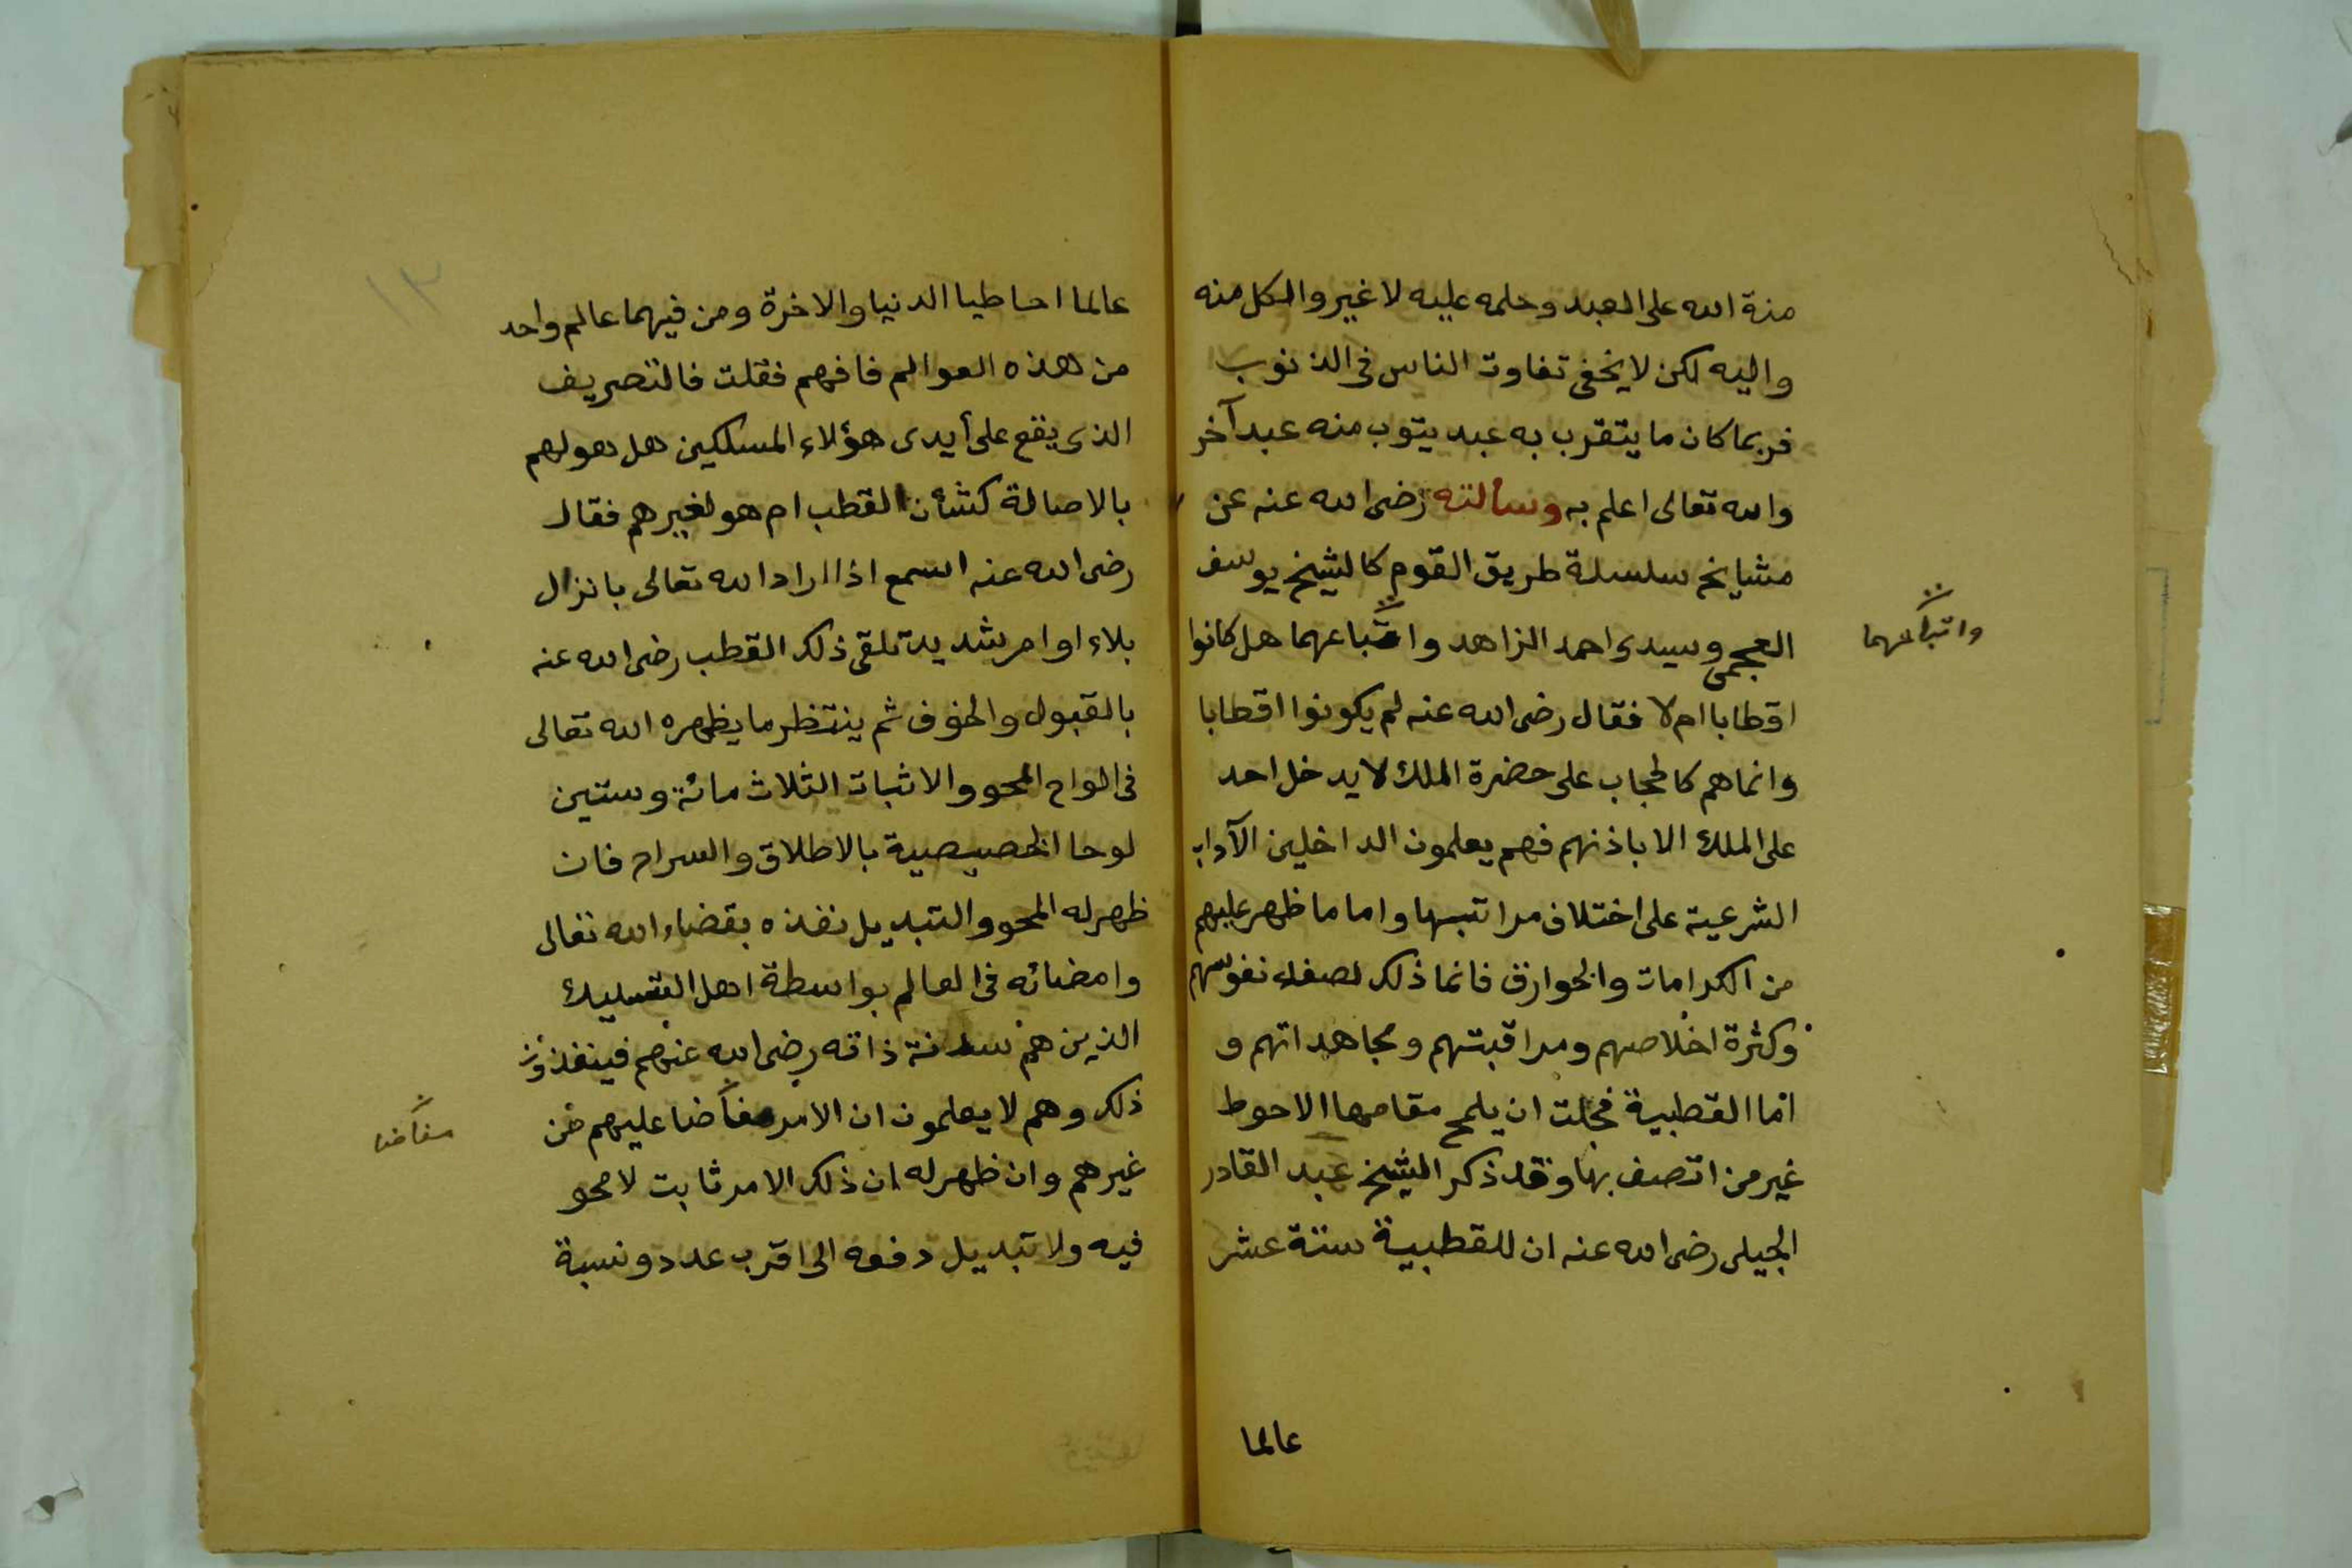 منة الله على العبد وحلمه عليه لا غير والكل منه
واليه لكن لا يخفى تفاوت الناس فى الذنوب
فربما كان ما يتقرب به عبد يتوب منه عبد آخر
والله تعالى اعلم به وسألته رضى الله عنه عن
مشايخ سلسلة طريق القوم كالشيخ يوسف
العجمى وسيدى احمد الزاهد واتباعهما هل كانوا
واتباعهما
اقطابا ام لا فقال رضى الله عنه لم يكونوا اقطابا
وانما هم كالحجاب على حضرة الملك لا يدخل احد
على الملك الا باذنهم فهم يعلمون الداخلين الآداب
الشرعية على اختلاف مراتبها واما ما ظهر عليهم
من الكرامات والخوارق فانما ذلك لصفاء نفوسهم
وكثرة اخلاصهم ومراقبتهم ومجاهداتهم و
اما القطبية فجلت ان يلمح مقامها الاحوط
غير من اتصف بها وقد ذكر الشيخ عبد القادر
الجيلى رضى الله عنه ان للقطبية ستة عشر
عالما
١٣
عالما احاطيا الدنيا والاخرة ومن فيهما عالم واحد
من هذه العوالم فافهم فقلت فالتصريف
الذى يقع على أيدى هؤلاء المسلكين هل هو لهم
بالاصالة كشأن القطب ام هو لغيرهم فقال
رضى الله عنه اسمع اذا اراد الله تعالى بانزال
بلاء او امر شديد تلقى ذلك القطب رضى الله عنه
بالقبول والخوف ثم ينتظر ما يظهره الله تعالى
فى الواح المحو والاثبات الثلاث مائة وستين
لوحا الخصيصية بالاطلاق والسراح فان
ظهر له المحو والتبديل نفذه بقضاء الله تعالى
وامضائه فى العالم بواسطة اهل التسليك
الذين هم سدنة ذاته رضى الله عنهم فينفذون
ذلك وهم لا يعلمون ان الامر مفاضا عليهم من
مفاضا
غيرهم وان ظهر له ان ذلك الامر ثابت لا محو
فيه ولا تبديل دفعه الى اقرب عدد ونسبة